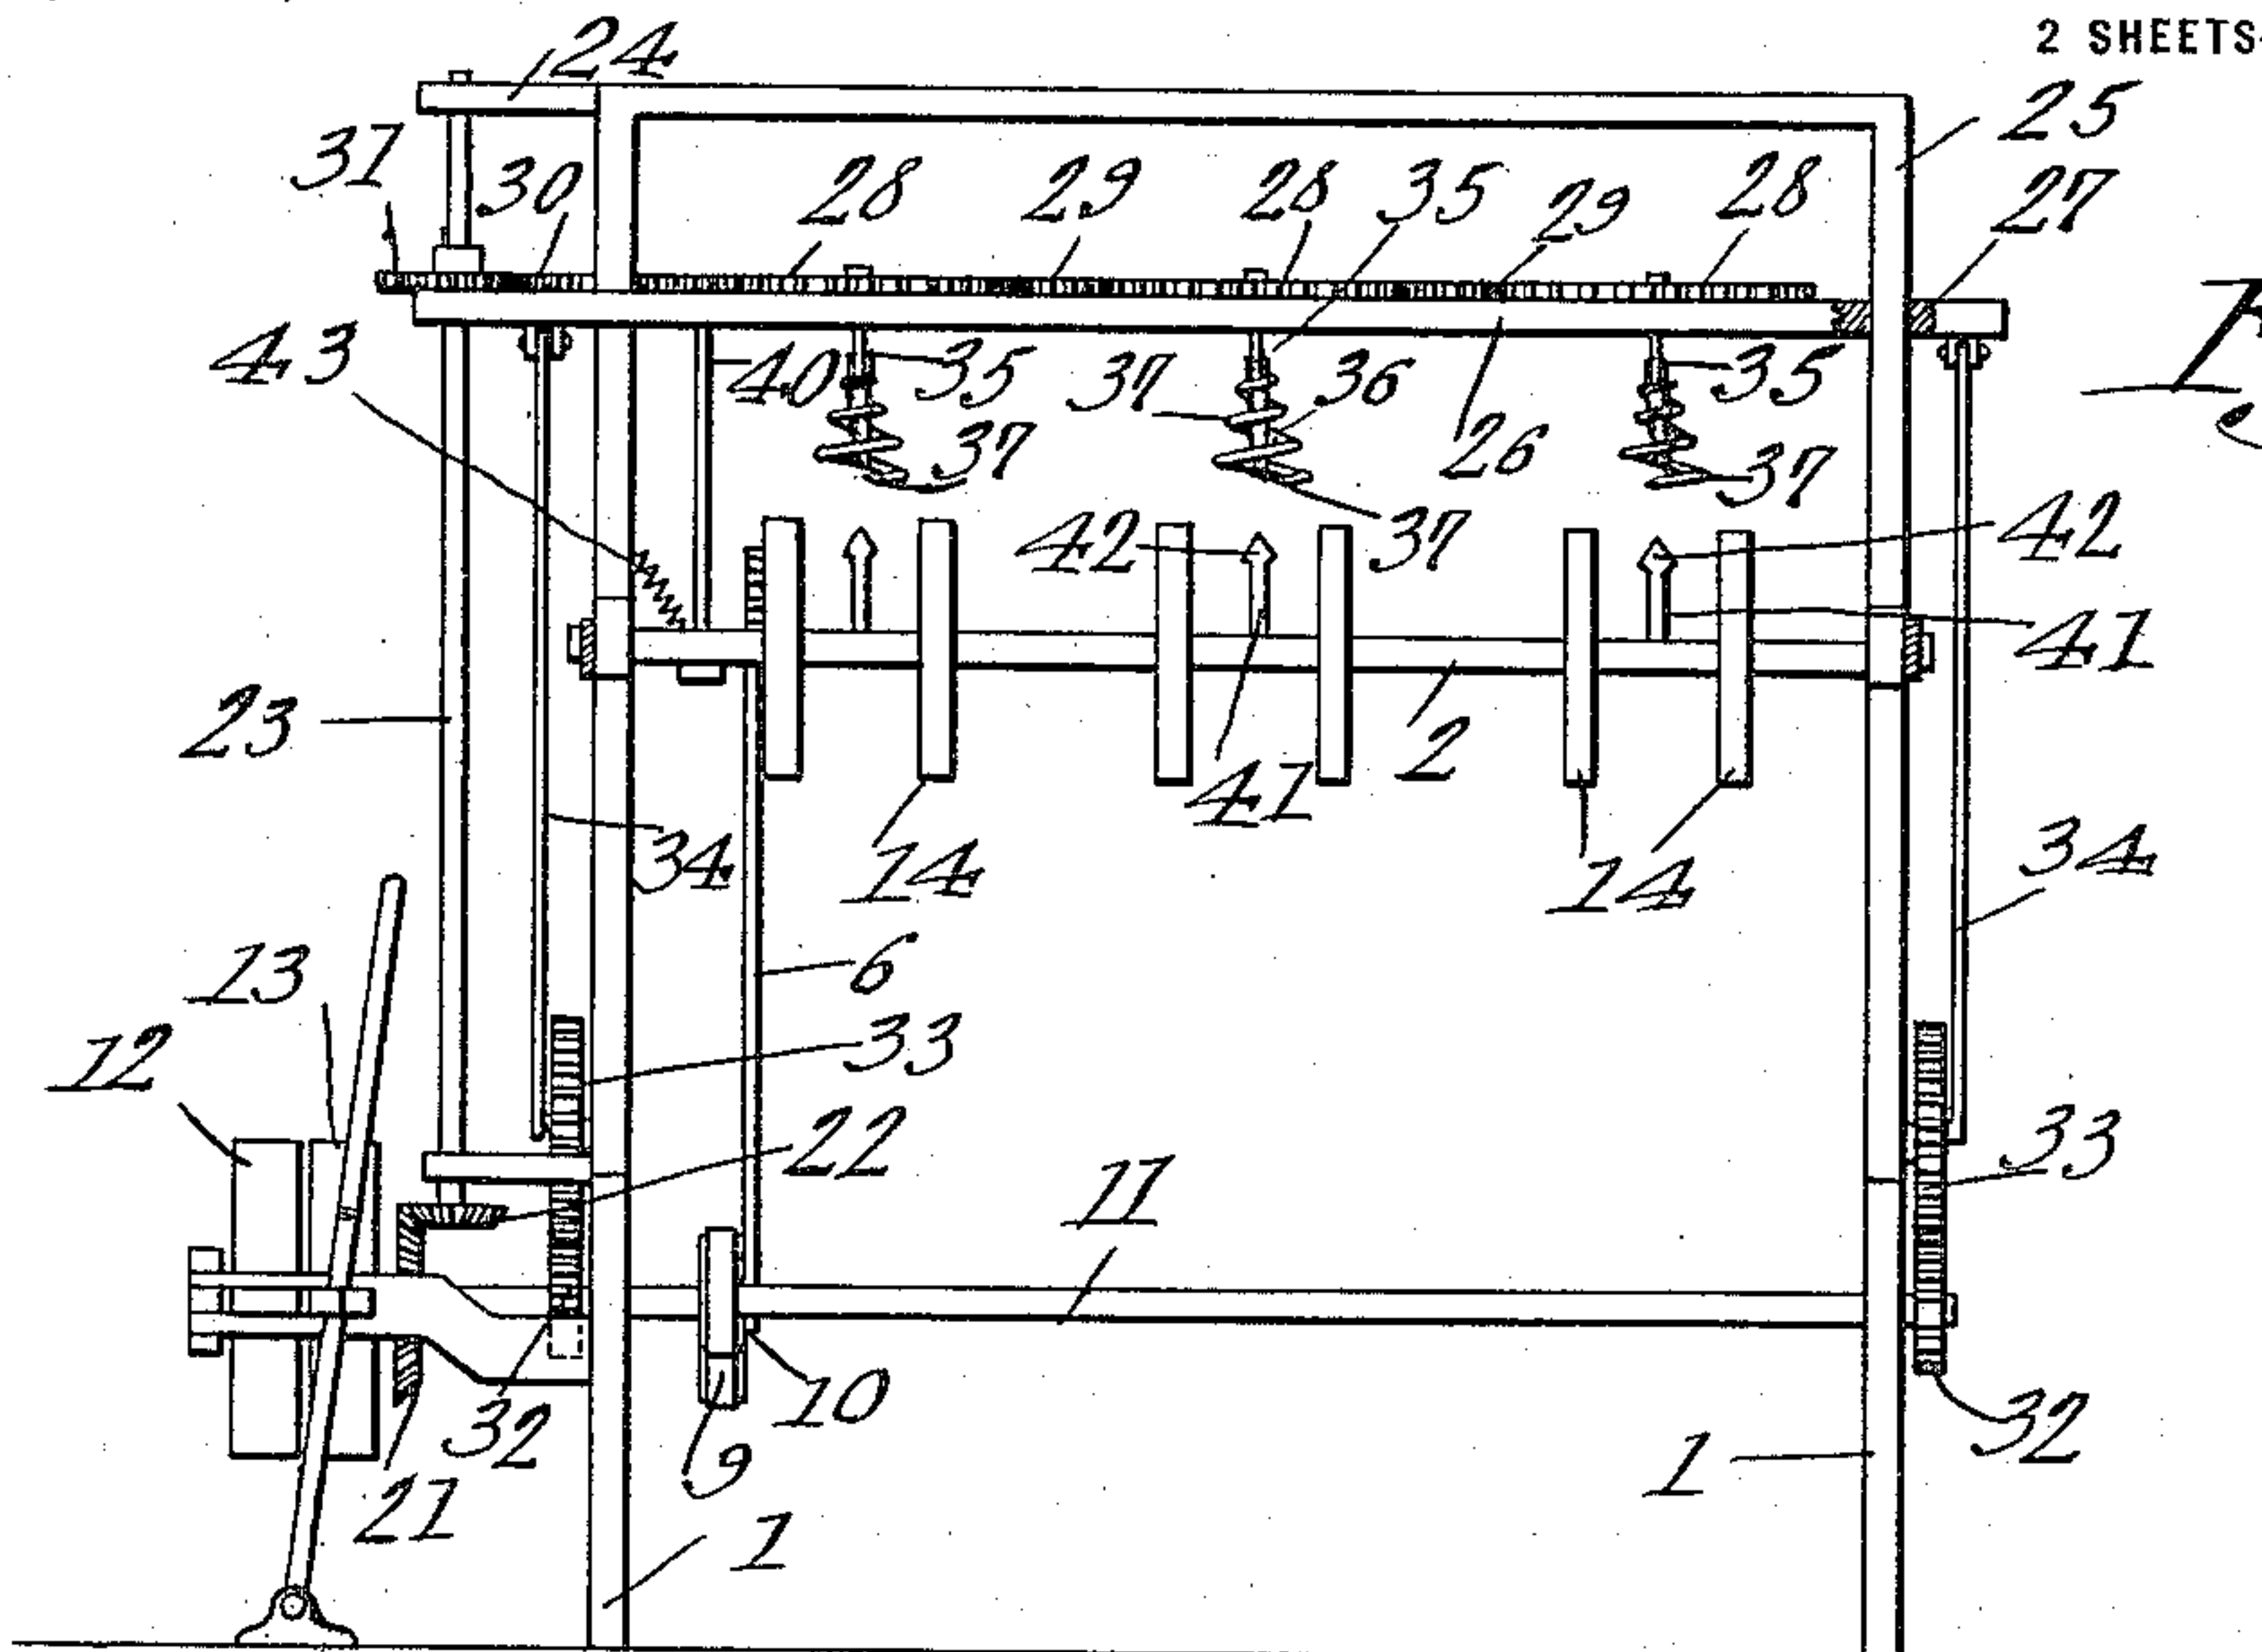 2 SHEETS
24
25
31
30
28
29
28
35
29
28
27
43
40
35
37
36
35
37
26
37
42
37
42
41
23
2
41
14
34
14
34
13
6
12
33
22
11
33
10
32
32
9
21
1
1